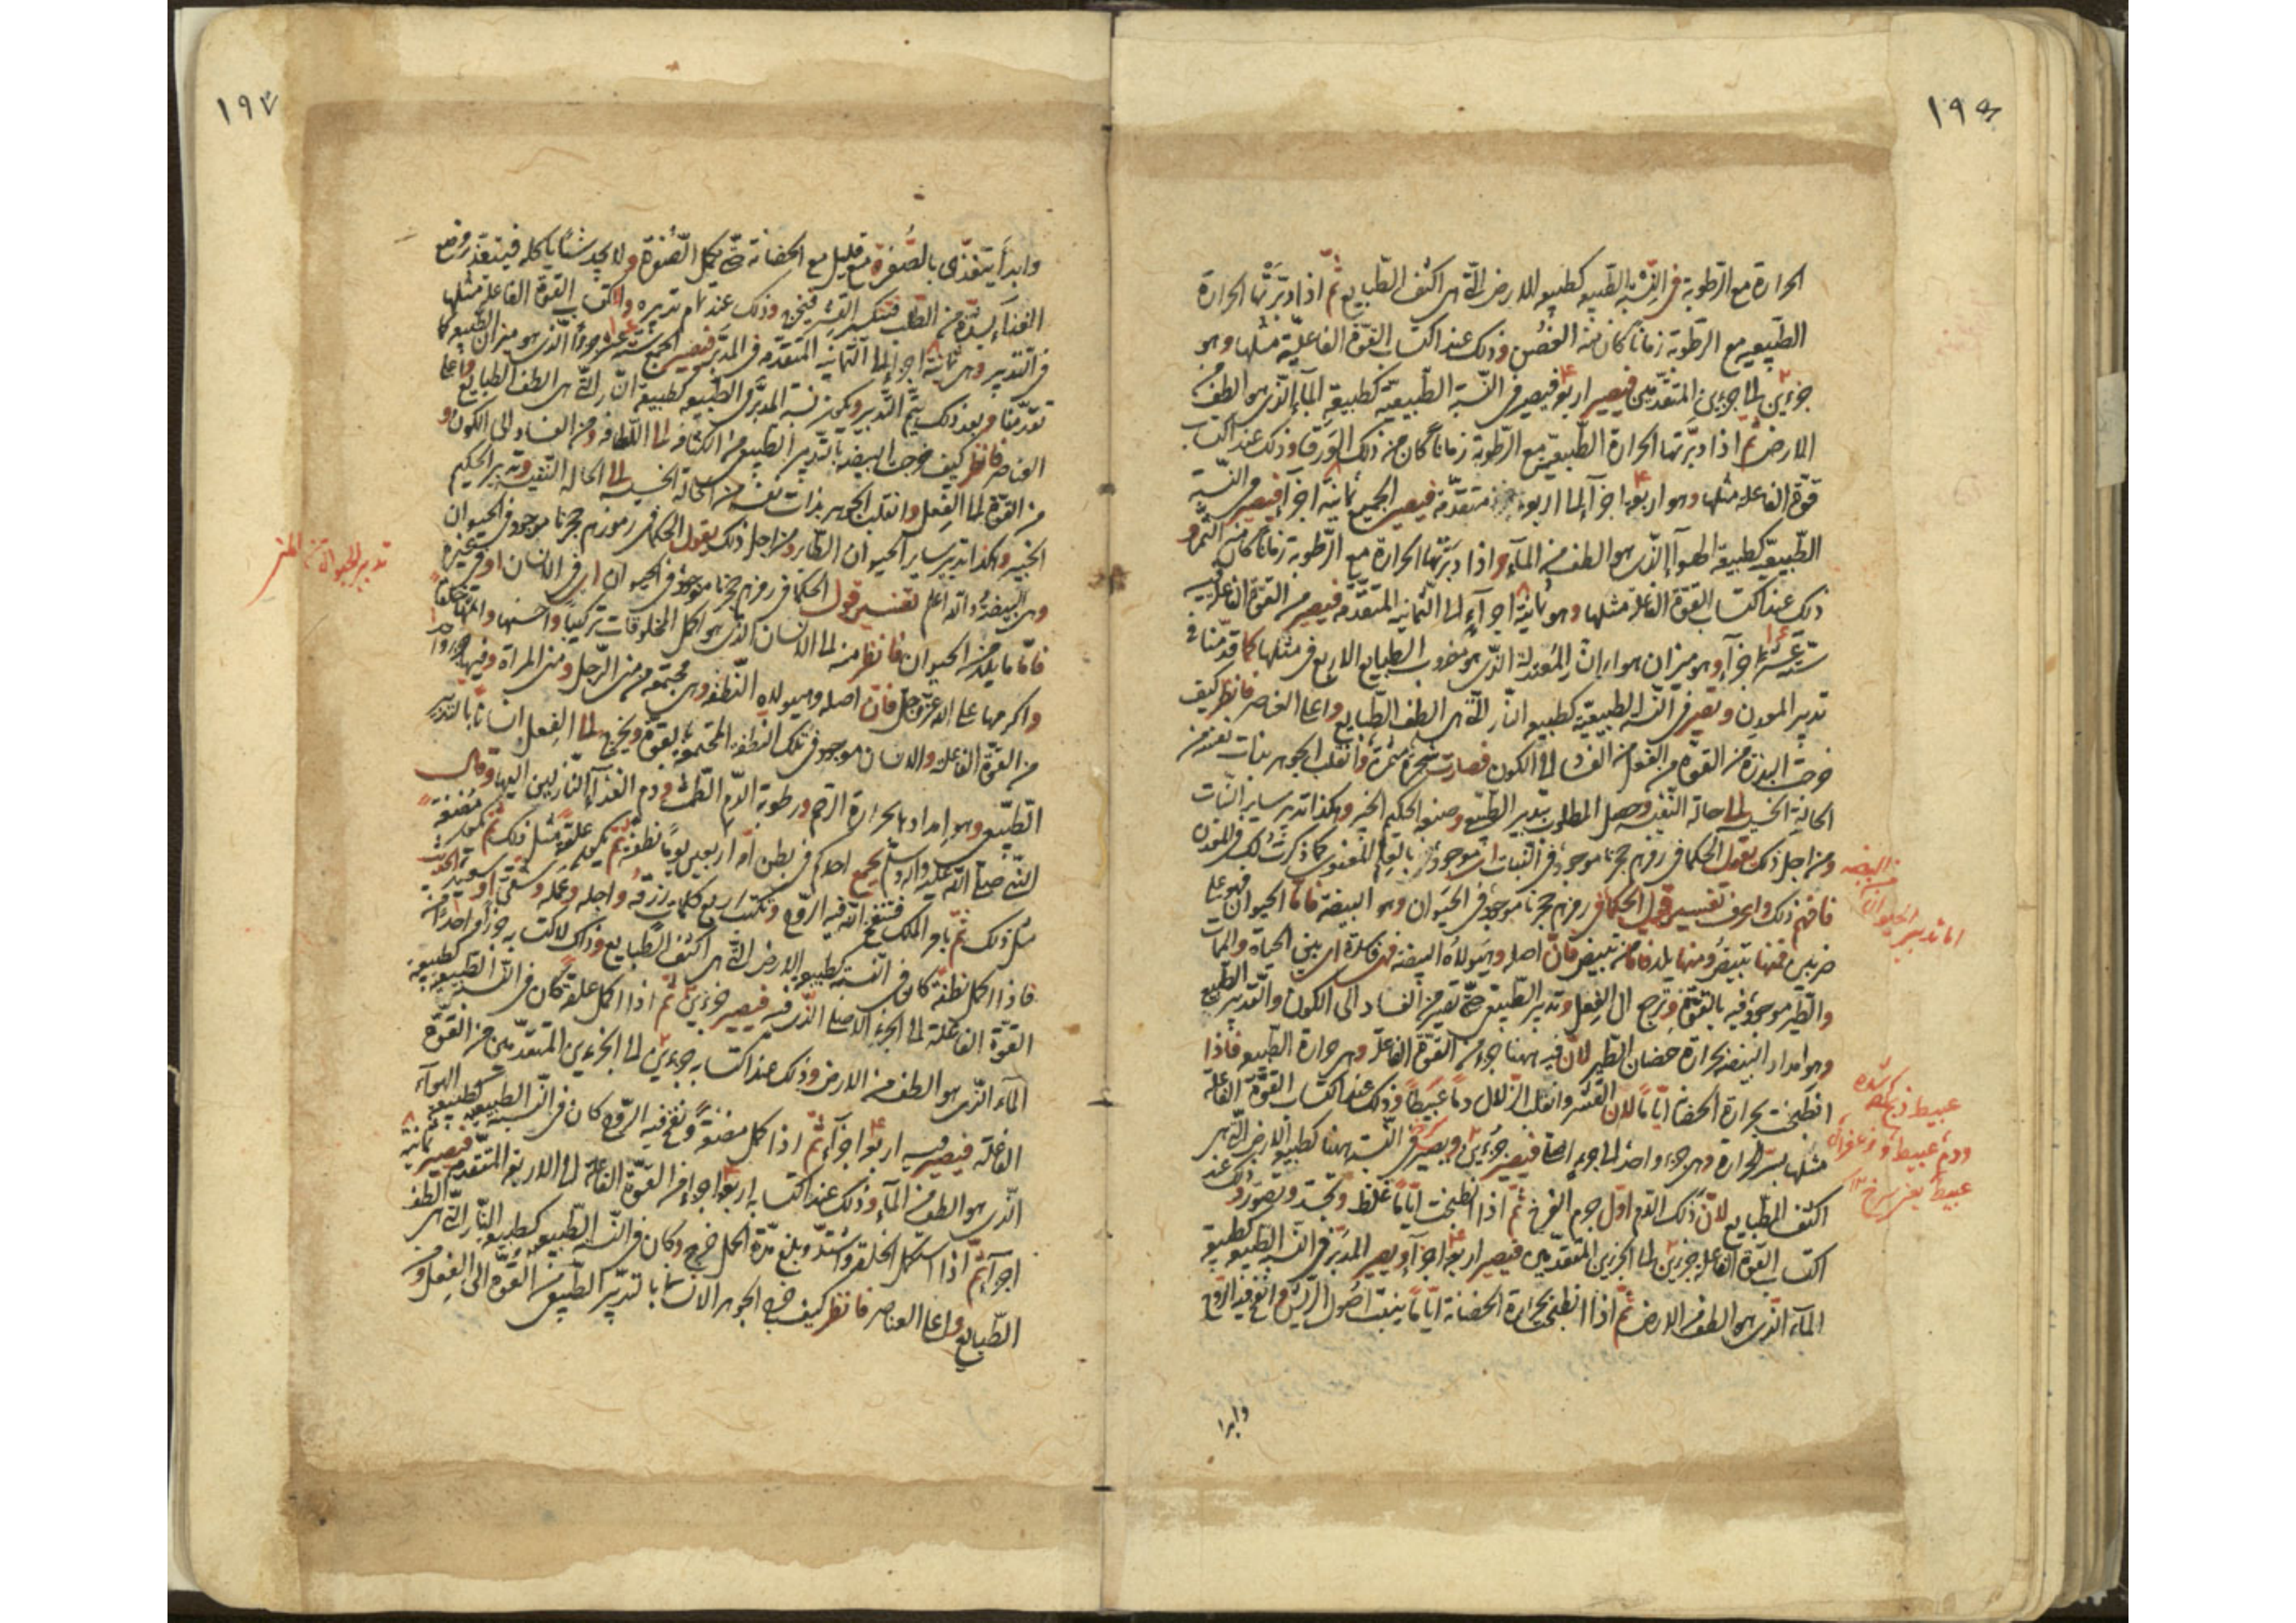 ١٩٦
الحرارة مع الرطوبة في النسبة الطبيعية كطبيعة الارض التي هي اكثف الطبايع ثم اذا دبرتها الحرارة
الطبيعية مع الرطوبة زمانا كان منه الغصن وذلك عند اكتساب القوة الفاعلية مثلها وهو
جزءين الى جزءين المتقدمين فيصير اربعة فيصير في النسبة الطبيعية كطبيعة المآء الذي هو الطف من
الارض ثم اذا دبرتها الحرارة الطبيعية مع الرطوبة زمانا كان من ذلك الورق وذلك عند اكتساب
قوة الفاعلة مثلها وهو اربعة اجزآء الى اربعة متقدمة فيصير الجميع ثمانية اجزآء فيصير في النسبة
الطبيعية كطبيعة الهوآء الذي هو الطف من المآء واذا دبرتها الحرارة مع الرطوبة زمانا كان منه الثمر و
ذلك عند اكتساب القوة الفاعلة مثلها وهو ثمانية اجزآء الى الثمانية المتقدمة فيصير من القوة الفاعلية
ستة عشر جزآء وهو ميزان هواء النار المعتدلة الذي هو مضروب الطبايع الاربع في مثلها كما قدمنا في
تدبير المعدن وتصير في النسبة الطبيعية كطبيعة النار التي هي الطف الطبايع واعلى العناصر فانظر كيف
خرجت البذرة من القوة الى الفعل من الفساد الى الكون فصارت شجرة مثمرة وانقلب الجوهر بذات نفسه من
الحالة الخسيسة الى حالة النفيسة وحصل المطلوب بتدبير الطبيعي وصنعة الحكيم الخبير وهكذا تدبير ساير النبات
ومن اجل ذلك يقول الحكمآء في رمزهم حجرنا موجود في النبات اى موجود بالتعليم المعنوى كما ذكرت لك في المعدن
فافهم ذلك واعرف تفسير قول الحكمآء في رمزهم حجرنا موجود في الحيوان وهو البيضة فاما الحيوان فهو على
ضربين فمنها تبيض ومنها يلد فاما من تبيض فان اصله وهيولاه البيضة فهي فاسدة اى بين الحياة والممات
والطير موجود فيه بالقوة وتخرج الى الفعل وتدبير الطبيعي حتى تصير من الفساد الى الكون والتدبير الطبيعي
وهو امداد البيضة بحرارة حضان الطير لان فيه ههنا جزء من القوة الفاعلة وهي حرارة الطبيعة فاذا
انطبخت بحرارة الحضانة اياما لان القشر وانقلب الزلال دما عبيطا وذلك عند اكتساب القوة الفاعلة
مثلها بسر الحرارة وهي جزء واحد الى جزء ايضا فيصير جزءين ويصير في النسبة ههنا كطبيعة الارض التي هي
اكثف الطبايع لان ذلك الدم اول جرم الفرخ ثم اذا انطبخت اياما غلظ وتجسد وتصور وذلك عند
اكتساب القوة الفاعلة جزءين الى الجزءين المتقدمين فيصير اربعة اجزآء ويصير المدبر في النسبة الطبيعية كطبيعة
المآء الذي هو الطف من الارض ثم اذا انطبخ بحرارة الحضانة اياما ينبت اصول الريش وانفخ فيه الروح
وابدا
اما تدبير الحيوان من البيضة
عبيط ذبح كرده شده
ودم عبيط وزعفران
عبيط يعنى سرخ ١٢
١٩٧
وابدأ يتغذى بالصفرة مع قليل مع الحضانة حتى يكمل الصفرة ولا يجد شيئا ياكله فيتعذر وضع
الغذآء لشدة من الطلب فتنكسر القشر فيخرج وذلك عند تمام تدبيره واكتساب القوة الفاعلة مثلها
في التدبير وهي ثمانية اجزآء الى الثمانية المتقدمة في المدبر فيصير الجميع ستة عشر جزءا الذي هو ميزان الطبيعة كما
تقدمنا وبعد ذلك يتم التدبير ويكون نسبة المدبر في الطبيعة كطبيعة النار التي هي الطف الطبايع واعلى
العناصر فانظر كيف خرجت البيضة بتدبير الطبيعي من الكثافة الى اللطافة ومن الفساد الى الكون و
من القوة الى الفعل وانقلب الجوهر بذات نفسه من الحالة الخسيسة الى الحالة النفيسة وتدبير الحكيم
الخبير وهكذا تدبير ساير الحيوان الطاير ومن اجل ذلك يقول الحكمآء في رموزهم حجرنا موجود في الحيوان
وهي البيضة والله اعلم تفسير قول الحكمآء في رمزهم حجرنا موجود في الحيوان اى في الانسان او في غيره
فاما ما يلد من الحيوان فانظر منه الى الانسان الذي هو اكمل المخلوقات تركيبا واحسنها واتمها خلقا
واكرمها على الله عز وجل فان اصله وهيولاه النطفة وهي مجتمعة من مني الرجل ومني المراة وفيها جزء واحد
من القوة الفاعلة والانسان موجود في تلك النطفة المجتمعة بالقوة ويخرج الى الفعل انسانا بالتدبير
الطبيعي وهو امدادها بحرارة الرحم ورطوبة الدم الطمث ودم الغذآء النازلين اليها وقال
النبي صلى الله عليه وآله وسلم يجمع احدكم في بطن امه اربعين يوما نطفة ثم يكون علقة مثل ذلك ثم يكون مضغة
مثل ذلك ثم يامر الملك فتنفخ الله فيه الروح وتكتب اربع كلمات رزقه واجله وعمله وشقي او سعيد الحديث
فاذا اكمل نطفة كان في النسبة كطبيعة الارض التي هي اكثف الطبايع وذلك لاكتسابه جزءا واحدا من
القوة الفاعلة الى الجزء الاصلي الذي فيه فيصير جزءين ثم اذا اكمل علقة كان في النسبة الطبيعية كطبيعة
المآء الذي هو الطف من الارض وذلك عند اكتسابه جزءين الى الجزءين المتقدمين من القوة
الفاعلة فيصير فيه اربعة اجزآء ثم اذا كمل مضغة ونفخ فيه الروح كان في النسبة الطبيعية كطبيعة الهوآء
الذي هو الطف من المآء وذلك عند اكتسابه اربعة اجزآء من القوة الفاعلة الى الاربعة المتقدمة فيصير ثمانية
اجزآء ثم اذا استكمل الخلقة واشتد وبلغ مدة الحمل خرج وكان في النسبة الطبيعية كطبيعة النار التي هي الطف
الطبايع واعلى العناصر فانظر كيف خرج الجوهر الانسانى بالتدبير الطبيعي من القوة الى الفعل و